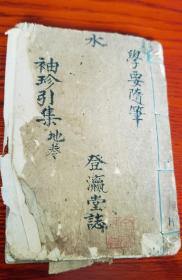 水
學要隨筆
袖珍引集 地叁
登瀛堂誌